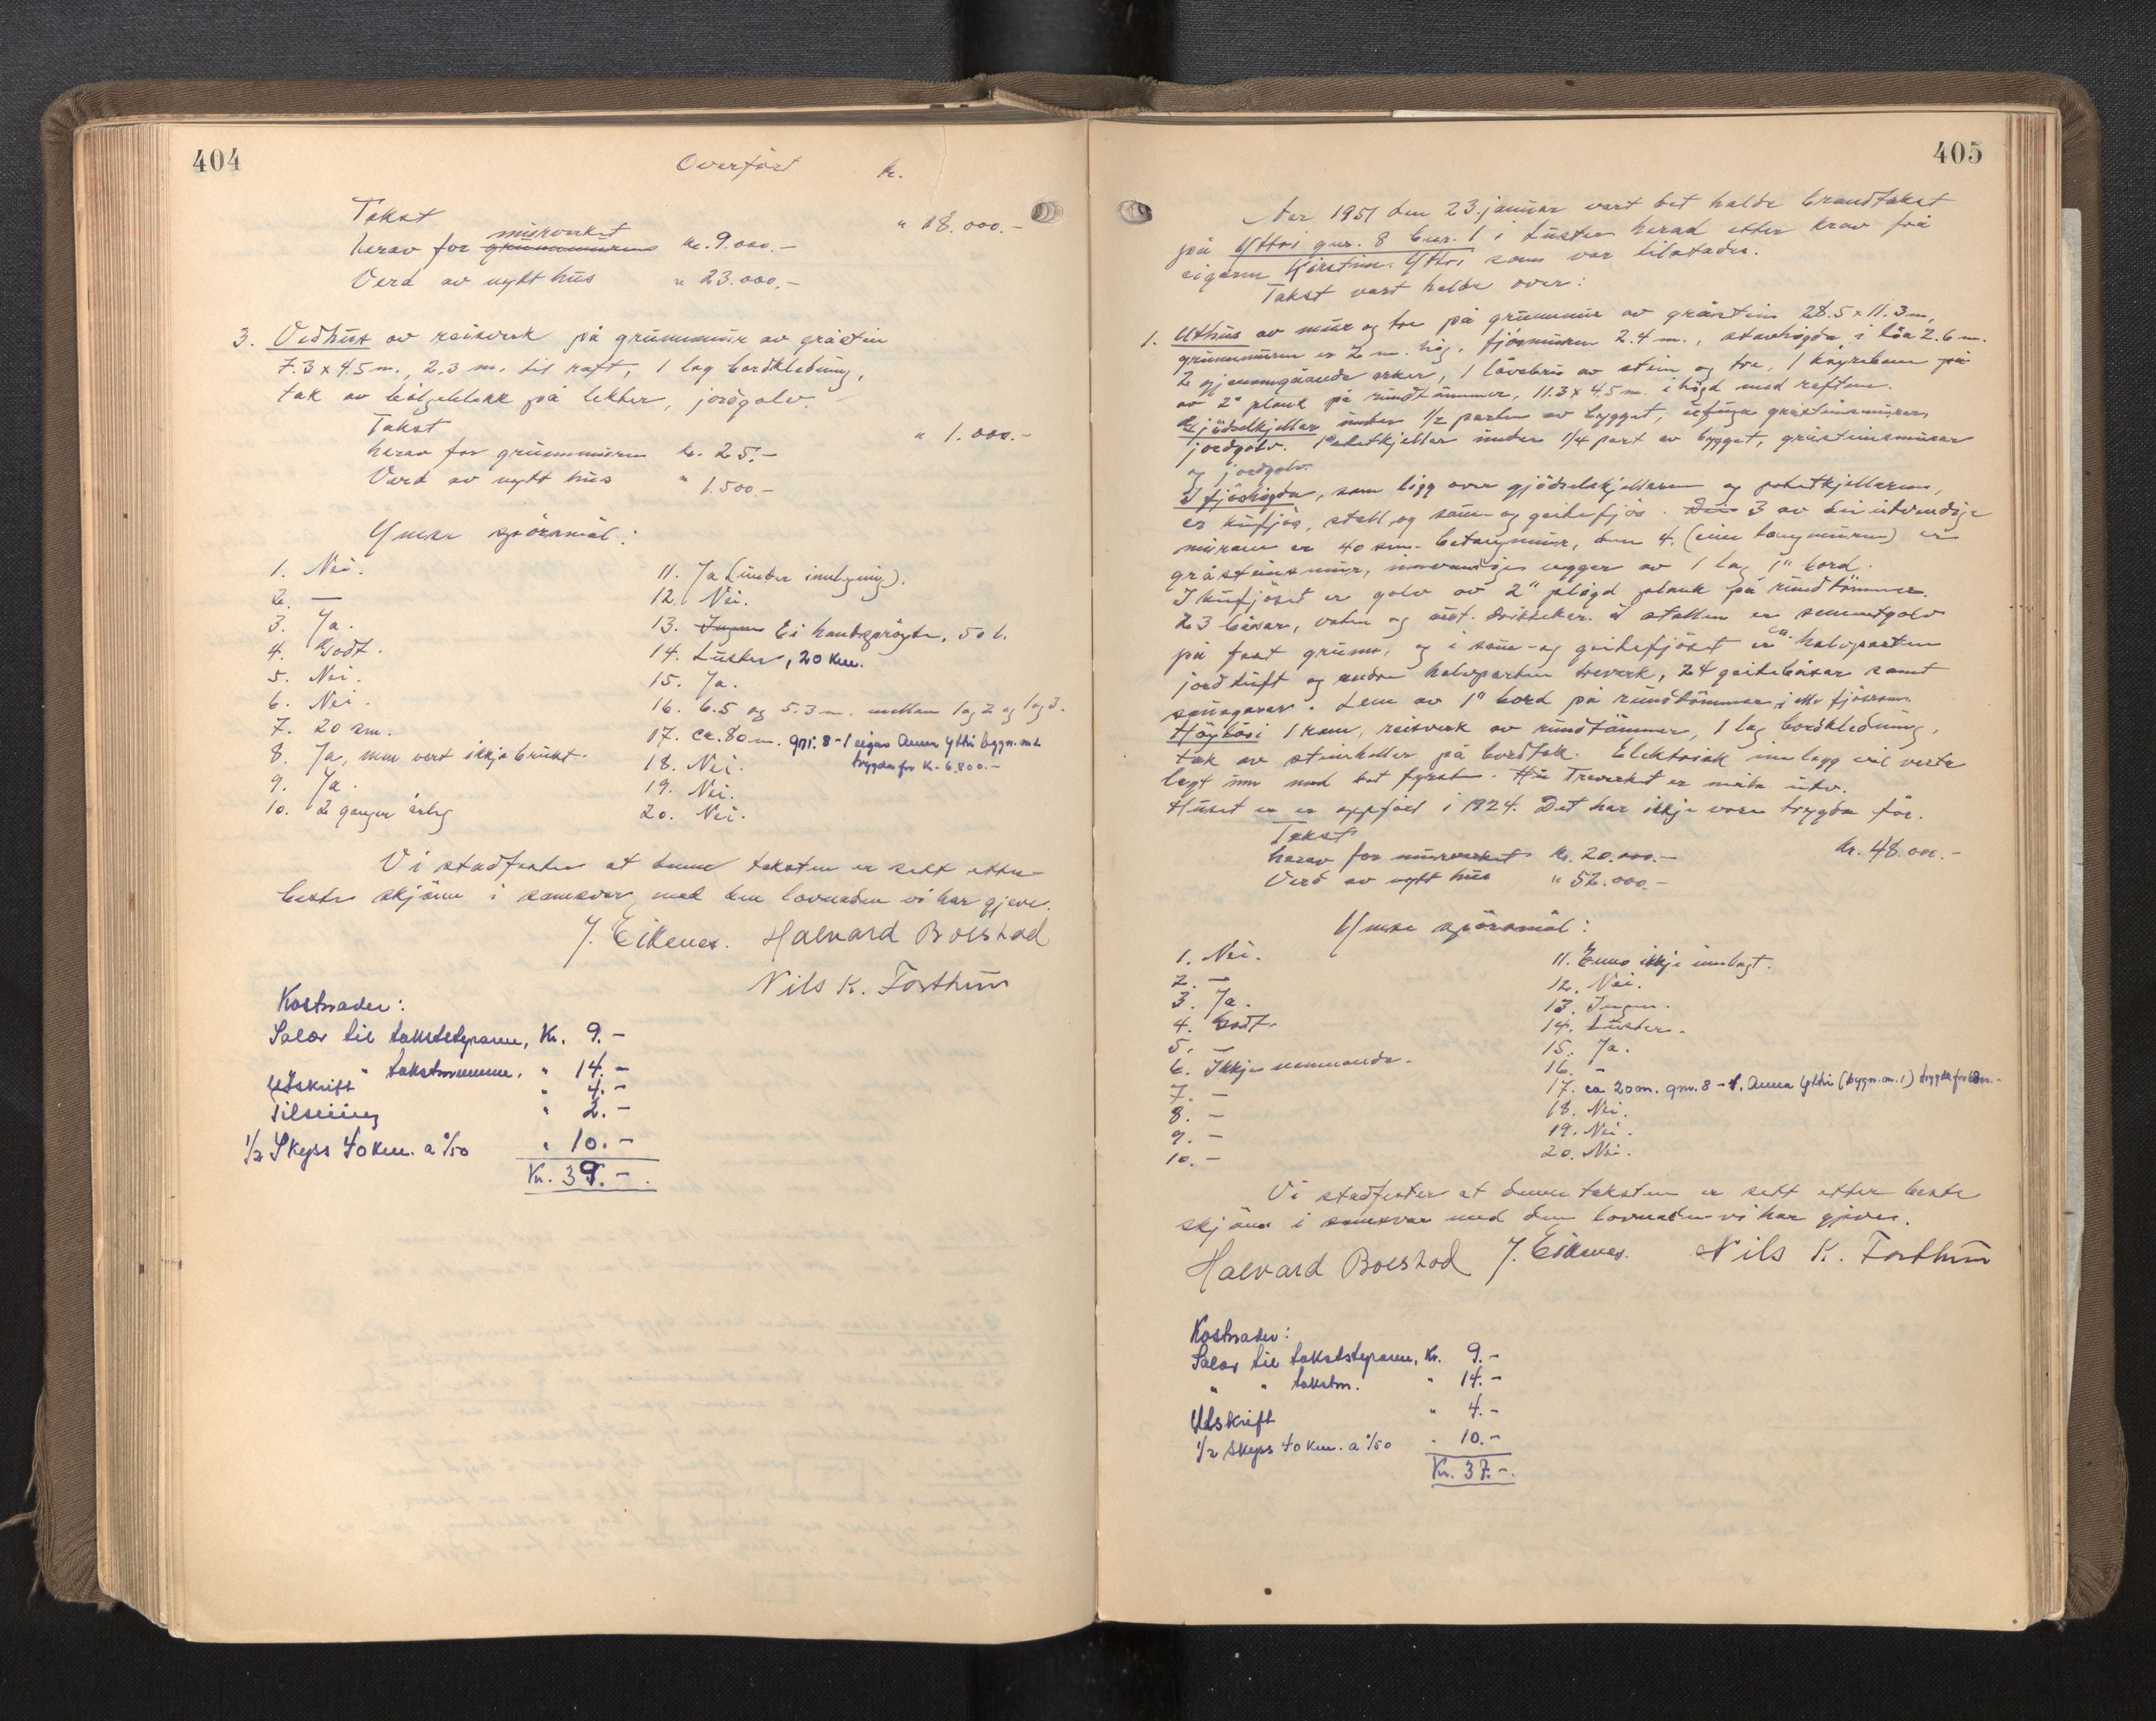 404
Overført kr.
Takst " 18.000.-
murverket
herav for grunnmuren kr. 9.000.-
Verd av nytt hus " 23.000.-
3. Vedhus av reisverk på grunnmur av gråstein
7.3 x 4.5 m., 2.3 m. til raft, 1 lag bordkledning,
tak av bølgeblekk på lekter, jordgolv.
Takst " 1.000.-
herav for grunnmuren kr. 25.-
Verd av nytt hus " 1.500.-
Ymse spörsmål:
1. Nei.
2. —
3. Ja.
4. Godt.
5. Nei.
6. Nei.
7. 20 cm.
8. Ja, men vert ikkje brukt.
9. Ja.
10. 2 gonger årleg
11. Ja (under innlegning).
12. Nei.
13. Ingen Ei handsprøyte, 50 l.
14. Luster, 20 km.
15. Ja.
16. 6.5 og 5.3 m. mellom 1 og 2 og 1 og 3.
17. ca. 80 m. gnr. 8-1 eigar Anna Yttri bygn. nr. 2
trygda for kr. 6.800.-
18. Nei.
19. Nei.
20. Nei.
Vi stadfester at denne taksten er sett etter
beste skjönn i samsvar med den lovnaden vi har gjeve.
J. Eikenes. Halvard Bolstad
Nils K. Forthun
Kostnader:
Salær til takststyraren, Kr. 9.-
" takstmennene, " 14.-
Utskrift " 4.-
Tilseiing " 2.-
1/2 Skyss 40 km. a %50 " 10.-
Kr. 39.-
405
Aar 1951 den 23. januar vart det halde brandtakst
på Yttri gnr. 8 bnr. 1 i Luster herad etter krav frå
eigaren Kirstin Yttri som var tilstades.
Takst vart halde over:
1. Uthus av mur og tre på grunnmur av gråstein 28.5 x 11.3 m,
grunnmuren er 2 m. høg, fjösmuren 2.4 m., stavhögda i löa 2.6 m.
2 gjennomgåande arker, 1 låvebru av stein og tre, 1 køyrebru på
av 2" plank på rundtömmer, 11.3 x 4.5 m. i högd med raftene.
Gjödselkjellar under 1/2 parten av bygget, ufuga gråsteinsmurar,
jordgolv. Potetkjellar under 1/4 part av bygget, gråsteinsmurar
og jordgolv.
I fjöshögda, som ligg over gjödselskjellaren og potetkjellaren,
er kufjös, stall og saue- og geitefjös. Dei 3 av dei utvendige
murane er 40 cm. betongmur, den 4. (eine langmuren) er
gråsteinsmur, innvendige vegger av 1 lag 1" bord.
I kufjöset er golv av 2" pløgd plank på rundtömmer.
23 båsar, vatn og aut. drikkekar. I stallen er sementgolv
på fast grunn, og i saue- og geitefjöset er halvparten
jordtuft og andre halvparten treverk, 24 geitebåsar samt
sauegarar. Lem av 1" bord på rundtömmer i alle fjösrom.
Höylöa i 1 rom, reisverk av rundtömmer, 1 lag bordkledning,
tak av steinheller på bordtak. Elektrisk innlegg vil verte
lagt inn med det fyrste. Hu Treverket er måla utv.
Huset er er oppfört i 1924. Det har ikkje vore trygda för.
Takst kr. 48.000.-
herav for murverket kr. 20.000.-
Verd av nytt hus " 52.000.-
Ymse spörsmål:
1. Nei.
2. —
3. Ja.
4. Godt.
5. —
6. Ikkje nemnande.
7. —
8. —
9. —
10. —
11. Enno ikkje innlagt.
12. Nei.
13. Ingen.
14. Luster.
15. Ja.
16. -
17. ca 20 m. gnr. 8-1. Anna Yttri (bygn. nr. 1) trygda for
18. Nei.
19. Nei.
20. Nei.
Vi stadfester at denne taksten er sett etter beste
skjönn i samsvar med den lovnaden vi har gjeve.
Halvard Bolstad J. Eikenes. Nils K. Forthun
Kostnader:
Salær til takststyraren, Kr. 9.-
" " takstm. " 14.-
Utskrift " 4.-
1/2 Skyss 40 km. a %50 " 10.-
Kr. 37.-